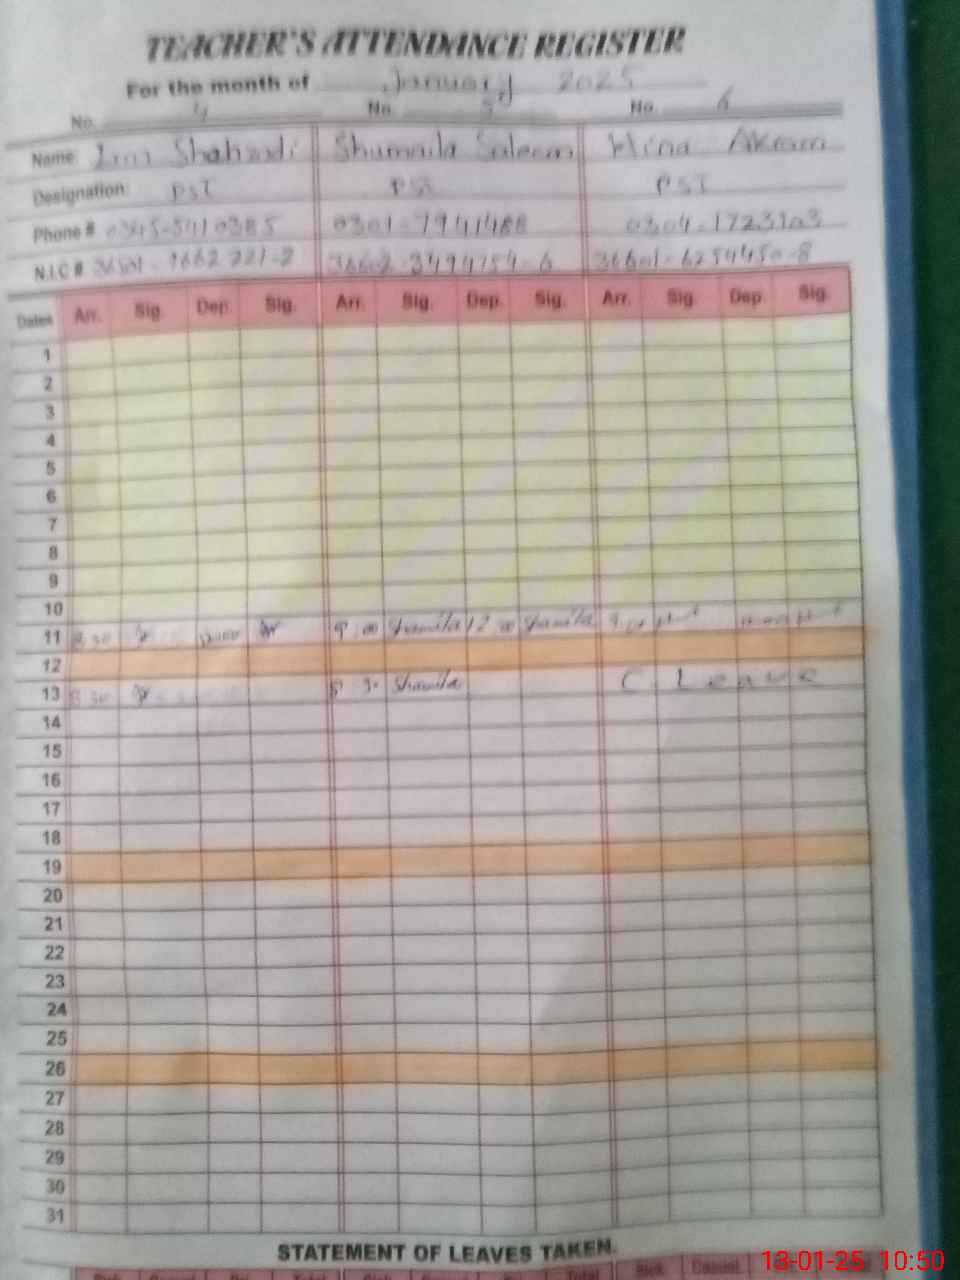 TEACHER'S ATTENDANCE REGISTER
For the month of January 2025
No. 4 No. 5 No. 6
Name: Shahzadi Shumaila Saleem Hina Akram
Designation: PST PST PST
Phone # 0345-5410385 0301-7941488 0304-1723103
N.I.C #
Dates Arr. Sig. Dep. Sig. Arr. Sig. Dep. Sig. Arr. Sig. Dep. Sig.
1
2
3
4
5
6
7
8
9
10
11 8 30 12:00 9 00 Shumaila 12 00 Shumaila
12
13 8 30 8 30 Shumaila C. Leave
14
15
16
17
18
19
20
21
22
23
24
25
26
27
28
29
30
31
STATEMENT OF LEAVES TAKEN.
13-01-25 10:50